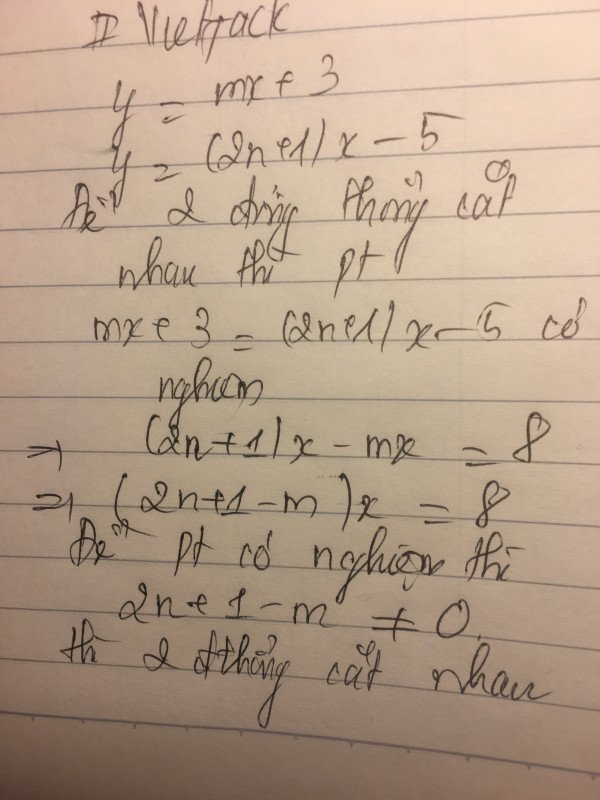 II Vietjack
y = mx + 3
y = (2n+1)x - 5
Để 2 đường thẳng cắt
nhau thì pt
mx + 3 = (2n+1)x - 5 có
nghiệm
⇒ (2n+1)x - mx = 8
⇒ (2n+1-m)x = 8
Để pt có nghiệm thì
2n+1-m ≠ 0.
thì 2 đthẳng cắt nhau